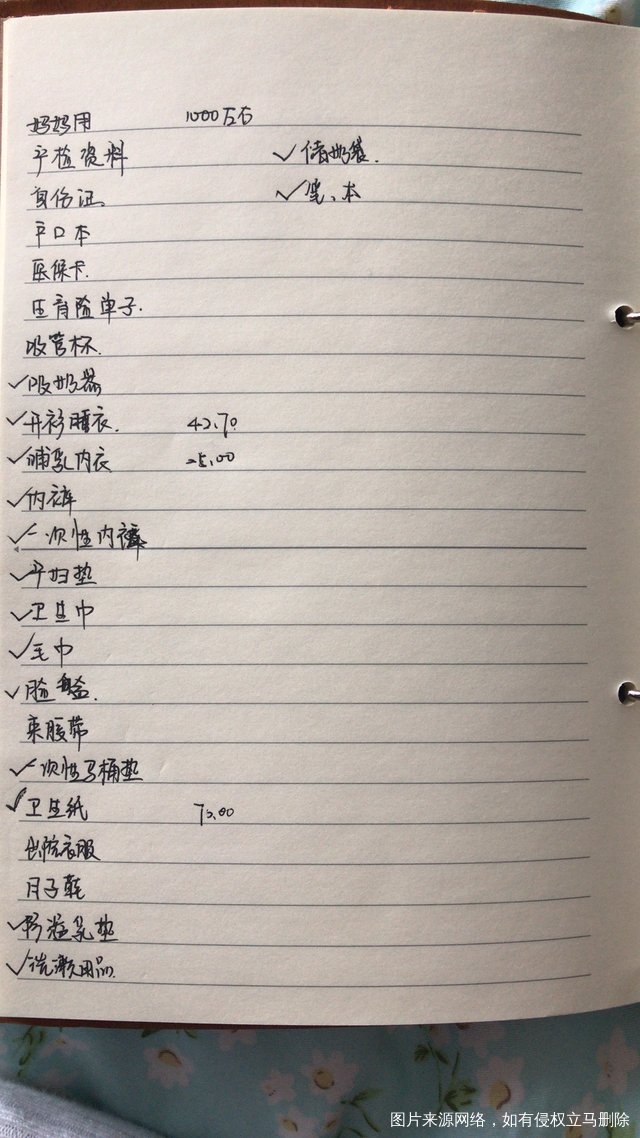 妈妈用 1000左右
产检资料 ✓储奶袋.
身份证 ✓笔、本
户口本
医保卡.
生育险单子.
吸管杯.
✓吸奶器
✓开衫睡衣. 42.70
✓哺乳内衣 25.00
✓内裤
✓一次性内裤
✓产妇垫
✓卫生巾
✓毛巾
✓脸盆.
束腰带
✓一次性马桶垫
✓卫生纸 72.00
出院衣服
月子鞋
✓防溢乳垫
✓洗漱用品.
图片来源网络，如有侵权立马删除